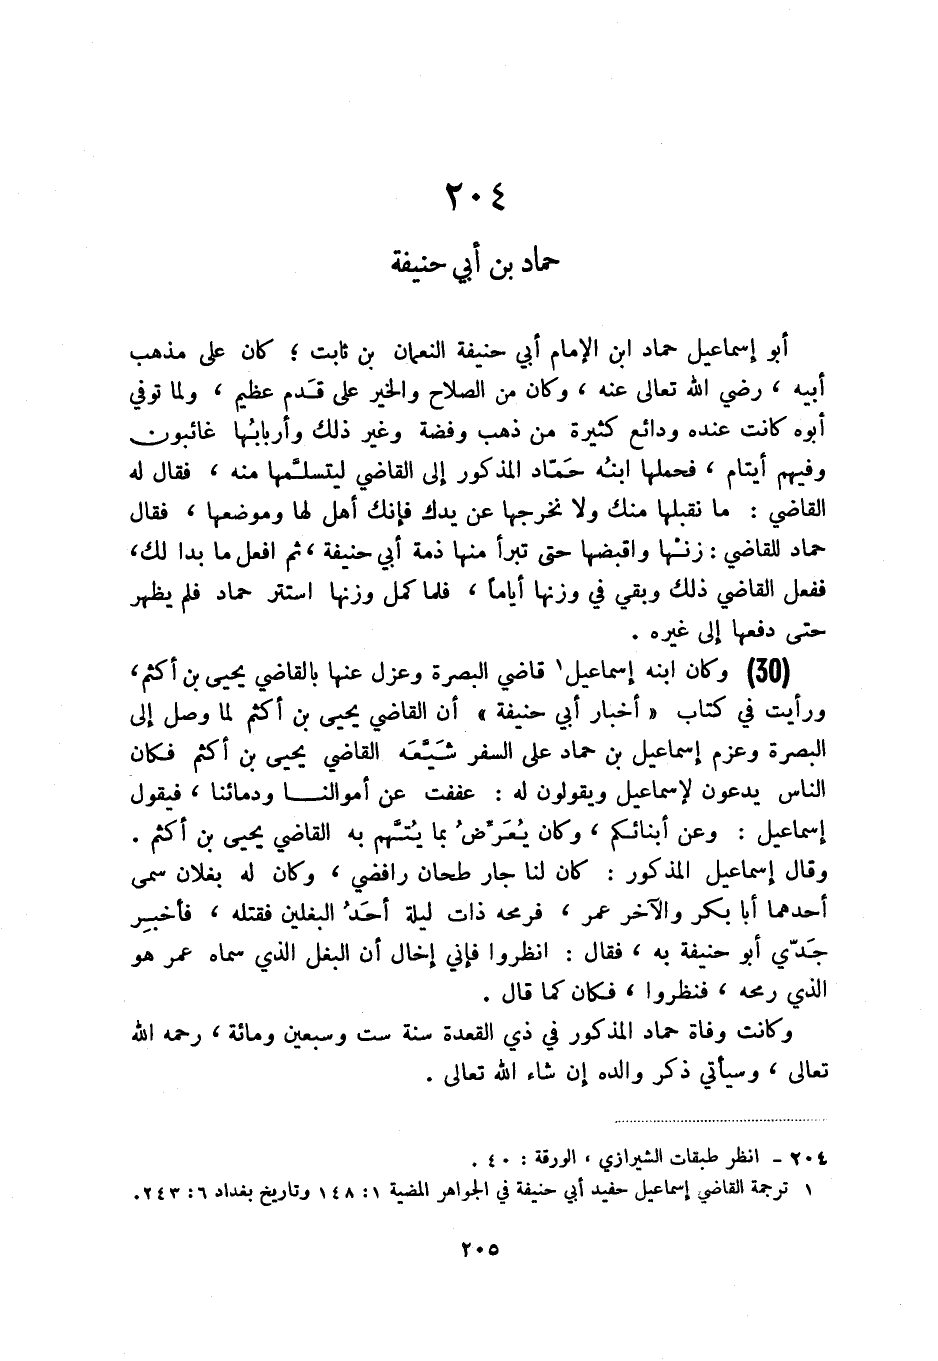 ٢٠٤
حماد بن أبي حنيفة
أبو إسماعيل حماد ابن الإمام أبي حنيفة النعمان بن ثابت ؛ كان على مذهب
أبيه ، رضي الله تعالى عنه ، وكان من الصلاح والخير على قَدَم عظيم ، ولما توفي
أبوه كانت عنده ودائع كثيرة من ذهب وفضة وغير ذلك وأربابُها غائبون
وفيهم أيتام ، فحملها ابنُه حَمّاد المذكور إلى القاضي ليتسلَّمها منه ، فقال له
القاضي : ما نقبلها منك ولا نخرجها عن يدك فإنك أهل لها وموضعها ، فقال
حماد للقاضي : زنْها واقبضها حتى تبرأ منها ذمة أبي حنيفة ، ثم افعل ما بدا لك،
ففعل القاضي ذلك وبقي في وزنها أياماً ، فلما كمل وزنها استتر حماد فلم يظهر
حتى دفعها إلى غيره .
(30) وكان ابنه إسماعيل١ قاضي البصرة وعزل عنها بالقاضي يحيى بن أكثم،
ورأيت في كتاب « أخبار أبي حنيفة » أن القاضي يحيى بن أكثم لما وصل إلى
البصرة وعزم إسماعيل بن حماد على السفر شَيَّعَه القاضي يحيى بن أكثم فكان
الناس يدعون لإسماعيل ويقولون له : عففت عن أموالنـــا ودمائنا ، فيقول
إسماعيل : وعن أبنائكم ، وكان يُعَرِّضُ بما يُتَّهم به القاضي يحيى بن أكثم .
وقال إسماعيل المذكور : كان لنا جار طحان رافضي ، وكان له بغلان سمى
أحدهما أبا بكر والآخر عمر ، فرمحه ذات ليلة أحَدُ البغلين فقتله ، فأخبِر
جَدّي أبو حنيفة به ، فقال : انظروا فإني إخال أن البغل الذي سماه عمر هو
الذي رمحه ، فنظروا ، فكان كما قال .
وكانت وفاة حماد المذكور في ذي القعدة سنة ست وسبعين ومائة ، رحمه الله
تعالى ، وسيأتي ذكر والده إن شاء الله تعالى .
٢٠٤ - انظر طبقات الشيرازي ، الورقة : ٤٠ .
١ ترجمة القاضي إسماعيل حفيد أبي حنيفة في الجواهر المضية ١ : ١٤٨ وتاريخ بغداد ٦ : ٢٤٣.
٢٠٥